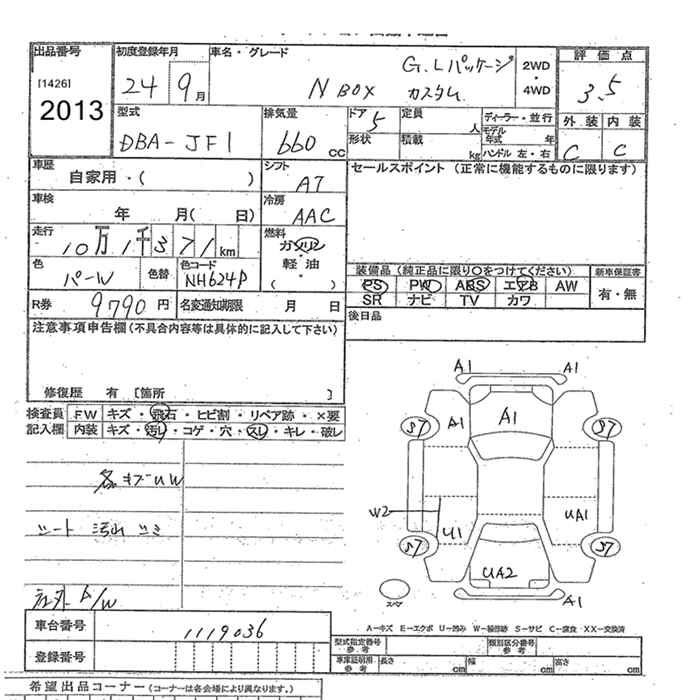 出品番号 初度登録年月 車名・グレード 評価点
[1426] 24 9月 N BOX G.Lパッケージ 2WD
カスタム ・ 4WD 3.5
2013
型式 排気量 ドア 5 定員 人 ディーラー・並行 外装 内装
DBA-JF1 660 cc 形状 積載 kg モデル年式 年 C C
ハンドル 左・右
車歴 シフト セールスポイント (正常に機能するものに限ります)
自家用・( ) AT
車検 冷房
年 月( 日) AAC
走行 燃料
10万1千371km ガソリン
・
軽油
・
( )
色 色替 色コード
パーW NH624P
装備品 (純正品に限り○をつけてください) 新車保証書
PS PW ABS エアB AW 有・無
SR ナビ TV カワ
R券 9790円 名変通知期限 月 日 後日品
注意事項申告欄 (不具合内容等は具体的に記入して下さい)
修復歴 有 [箇所 ]
検査員 FW キズ・飛石・ヒビ割・リペア跡・×要
記入欄 内装 キズ・汚れ・コゲ・穴・スレ・キレ・破レ
各キズUW
シート汚れ シミ
A1 A1
A1 A1
S7 S7
W2 U1 UA1
S7 S7
UA2
A1
スペア
A-キズ E-エクボ U-凹み W-補修跡 S-サビ C-腐食 XX-交換済
車台番号 1119036
登録番号
型式指定番号 参考 類別区分番号 参考
車庫証明用 参考 長さ cm 幅 cm 高さ cm
希望出品コーナー (コーナーは各会場により異なります。)